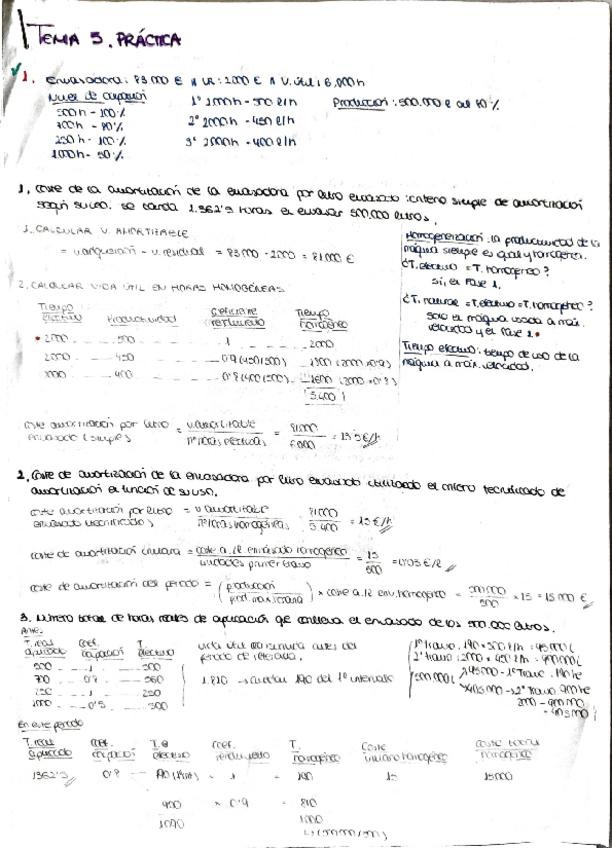 TEMA 5. PRÁCTICA
1. Envasadora: 83.000 € VR: 2000 € V. útil: 6.000h
Nivel de ocupación
500h - 100%
700h - 80%
250h - 100%
1000h - 50%
1º 2000h - 500 l/h
2º 2000h - 450 l/h
3º 2000h - 400 l/h
Producción: 500.000 l al 80%
1. Coste de la amortización de la envasadora por litro envasado: criterio simple de amortización
según su uso. Se tarda 1.362'5 horas en envasar 500.000 litros.
1. CALCULAR V. AMORTIZABLE
= v. adquisición - v. residual = 83.000 - 2000 = 81.000 €
2. CALCULAR VIDA ÚTIL EN HORAS HOMOGÉNEAS
Tiempo efectivo Productividad Coeficiente rendimiento Tiempo homogéneo
2000 500 1 2000
2000 450 0'9 (450/500) 1800 (2000×0'9)
2000 400 0'8 (400/500) 1600 (2000×0'8)
5.400
Homogeneización: la productividad de la
máquina siempre es igual y homogénea.
¿T. efectivo = T. homogéneo?
Sí, en Fase 1.
¿T. natural = T. efectivo = T. homogéneo?
Solo en máquina usada a máx.
velocidad y en Fase 1.
Tiempo efectivo: tiempo de uso de la
máquina a máx. velocidad.
Coste amortización por litro envasado (simple) = v. amortizable / nº horas efectivas = 81.000 / 6.000 = 13'5 €/h
2. Coste de amortización de la envasadora por litro envasado utilizando el criterio tecnificado de
amortización en función de su uso.
Coste amortización por litro envasado (tecnificado) = v. amortizable / nº horas homogéneas = 81.000 / 5.400 = 15 €/h
Coste de amortización unitaria = coste a. l envasado homogéneo / unidades primer tramo = 15 / 500 = 0'03 €/l
Coste de amortización del periodo = (producción / prod. máx. maquinaria) × coste a. l env. homogéneo = 500.000 / 500 × 15 = 15.000 €
3. Número total de horas reales de aplicación que conlleva el envasado de los 500.000 litros.
Antes
T. real aplicado Coef. ocupación T. efectivo
500 1 500
700 0'8 560
250 1 250
1000 0'5 500
1.810 → quedan 190 del 1º intervalo
1º tramo: 190 × 500 l/h = 95.000 l
2º tramo: 2000 × 450 l/h = 900.000 l
En este periodo
T. real aplicado Coef. ocupación T. e efectivo Coef. rendimiento T. homogéneo Coste unitario homogéneo Coste total homogéneo
1362'5 0'8 190 1 190 15 15000
900 × 0'9 = 810
1090 1000